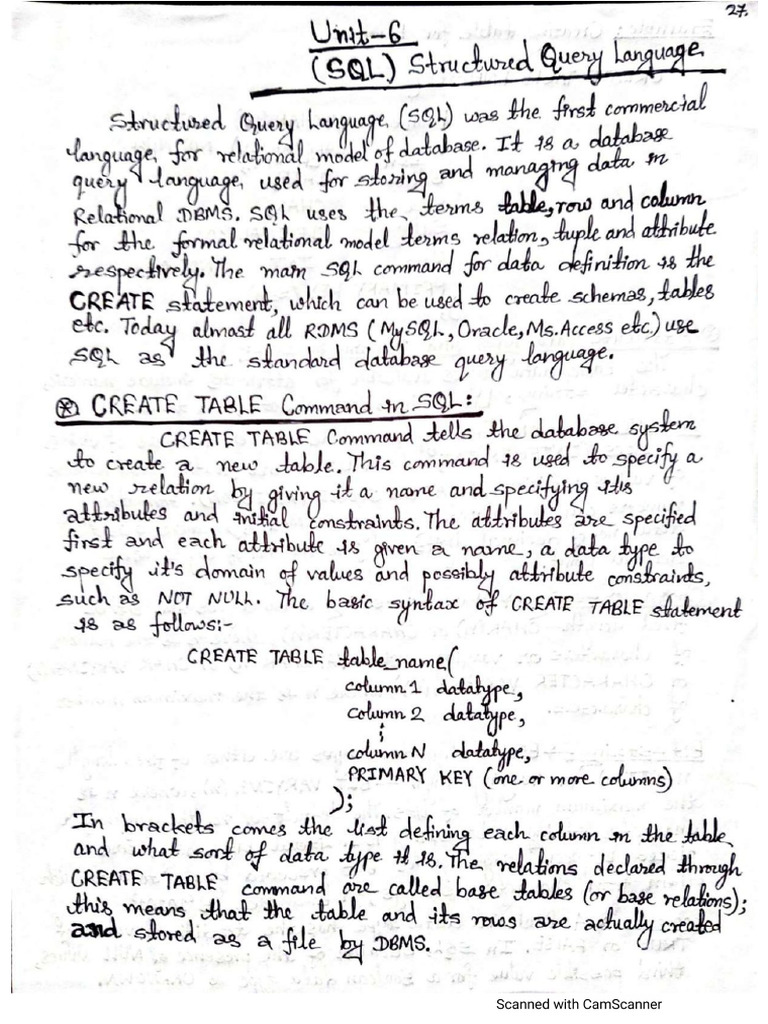 27.
Unit-6
(SQL) Structured Query Language
Structured Query Language (SQL) was the first commercial
language for relational model of database. It is a database
query language, used for storing and managing data in
Relational DBMS. SQL uses the terms table, row and column
for the formal relational model terms relation, tuple and attribute
respectively. The main SQL command for data definition is the
CREATE statement, which can be used to create schemas, tables
etc. Today almost all RDMS (MySQL, Oracle, Ms.Access etc.) use
SQL as the standard database query language.
⊛ CREATE TABLE Command in SQL:
CREATE TABLE Command tells the database system
to create a new table. This command is used to specify a
new relation by giving it a name and specifying it's
attributes and initial constraints. The attributes are specified
first and each attribute is given a name, a data type to
specify it's domain of values and possibly attribute constraints,
such as NOT NULL. The basic syntax of CREATE TABLE statement
is as follows:-
CREATE TABLE table_name(
column 1 datatype,
column 2 datatype,
⋮
column N datatype,
PRIMARY KEY (one or more columns)
);
In brackets comes the list defining each column in the table
and what sort of data type it is. The relations declared through
CREATE TABLE command are called base tables (or base relations);
this means that the table and its rows are actually created
and stored as a file by DBMS.
Scanned with CamScanner